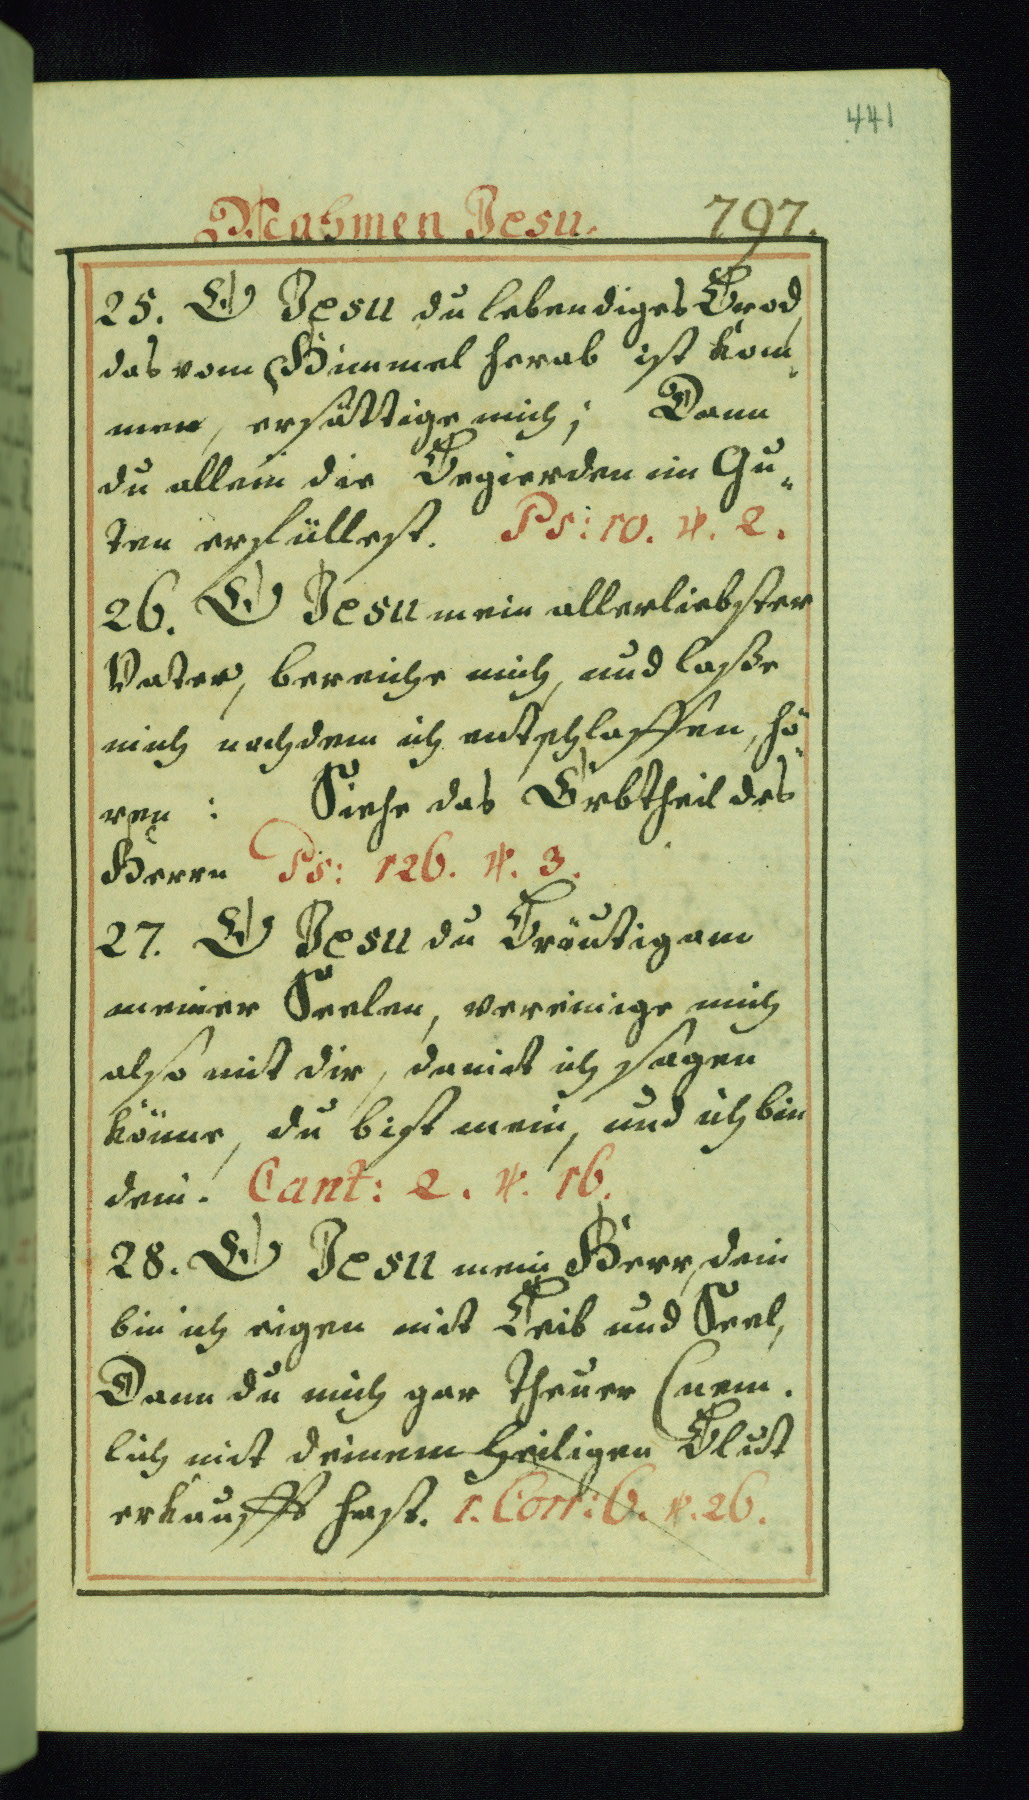 441
Nahmen Jesu. 797.
25. O Jesu du lebendiges Brod,
das vom Himmel herab ist kom-
men, ersättige mich; Dann
du allein die Begierden im Gu-
ten erfüllest. Ps: 10. ℣. 2.
26. O Jesu mein allerliebster
Vater, bereiche mich, und laße
mich nachdem ich entschlaffen, hö-
ren: Siehe das Erbtheil des
Herrn Ps: 126. ℣. 3.
27. O Jesu du Bräutigam
meiner Seelen, vereinige mich
also mit dir, damit ich sagen
könne, du bist mein, und ich bin
dein. Cant: 2. ℣. 16.
28. O Jesu mein Herr, dein
bin ich eigen mit Leib und Seel,
Dann du mich gar theuer (nem-
lich mit deinem heiligen Blut
erkaufft hast. 1. Corr: 6. ℣. 26.